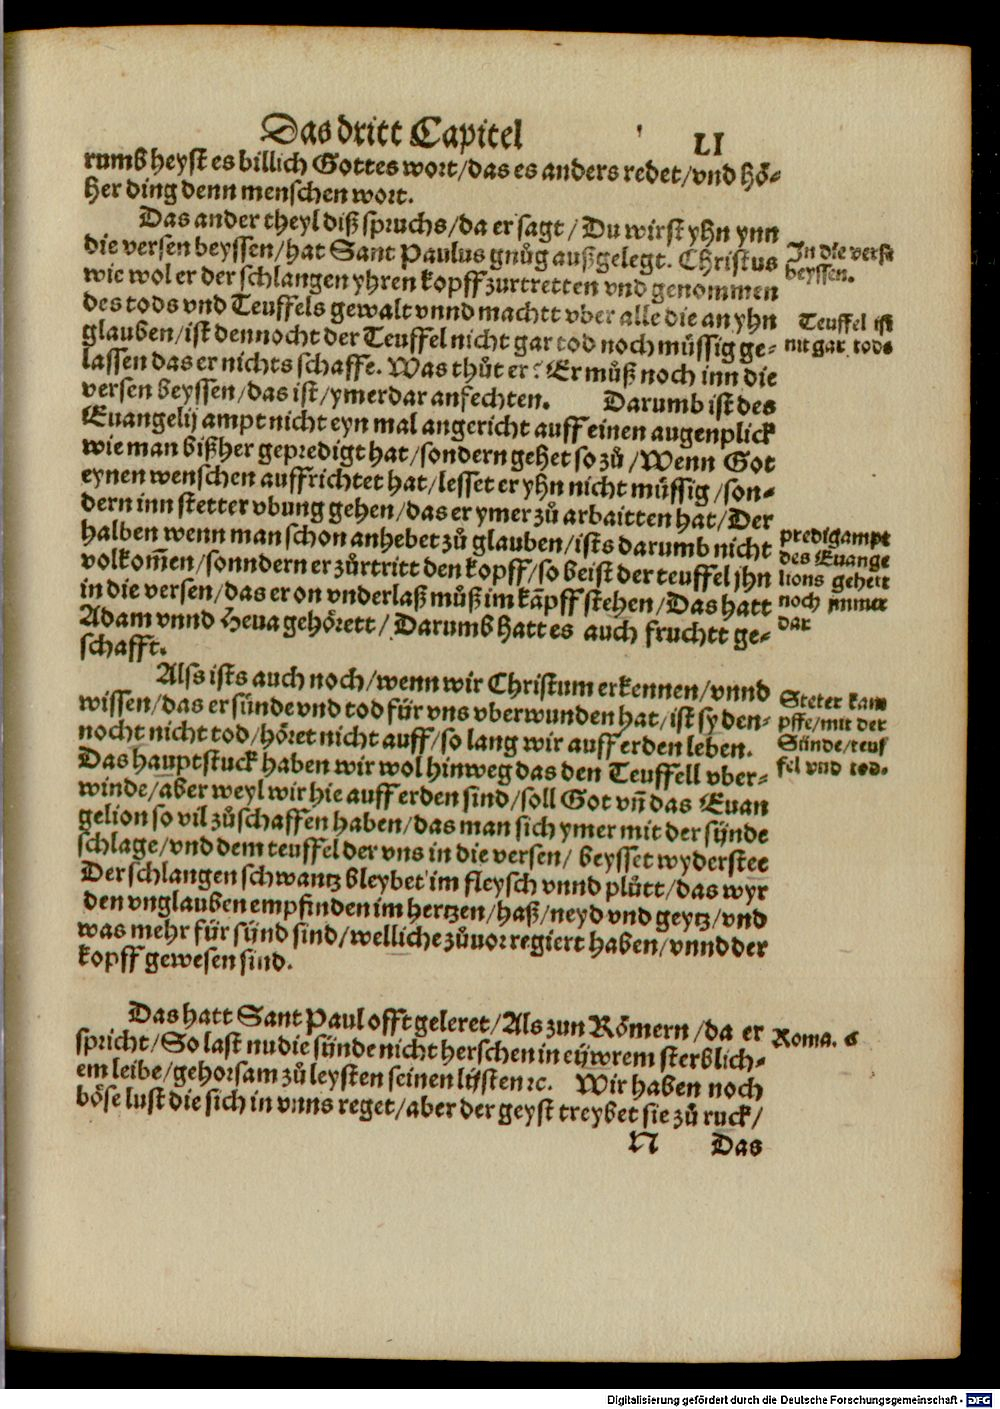 Das dritt Capitel LI
rumb heyst es billich Gottes wort/das es anders redet/vnd hö-
her ding denn menschen wort.
Das ander theyl diß spruchs/da er sagt/Du wirst yhn ynn
die versen beyssen/hat Sant Paulus gnůg außgelegt. Christus
wie wol er der schlangen yhren kopff zurtretten vnd genommen
des tods vnd Teuffels gewalt vnnd machtt vber alle die an yhn
glauben/ist dennocht der Teuffel nicht gar tod noch müssig ge-
lassen das er nichts schaffe. Was thůt er? Er můß noch inn die
versen beyssen/das ist/ymerdar anfechten. Darumb ist des
Euangelij ampt nicht eyn mal angericht auff einen augenplick
wie man bißher gepredigt hat/sondern gehet so zů/Wenn Got
eynen wenschen auffrichtet hat/lesset er yhn nicht müssig/son-
dern inn stetter vbung gehen/das er ymer zů arbaitten hat/Der
halben wenn man schon anhebet zů glauben/ists darumb nicht
volkom̄en/sonndern er zůrtritt den kopff/so beist der teuffel jhn
in die versen/das er on vnderlaß můß im kāpff stehen/Das hatt
Adam vnnd Heua gehörett/Darumb hatt es auch fruchtt ge-
schafft.
In die verse
beyssen.
Teuffel ist
nit gar tods
predigampt
des Euange
lions gehett
noch jmmer
dar
Alss ists auch noch/wenn wir Christum erkennen/vnnd
wissen/das er sünde vnd tod für vns vberwunden hat/ist sy den-
nocht nicht tod/höret nicht auff/so lang wir auff erden leben.
Das hauptstuck haben wir wol hinweg das den Teuffell vber-
winde/aber weyl wir hie auff erden sind/soll Got vn̄ das Euan
gelion so vil zůschaffen haben/das man sich ymer mit der sÿnde
schlage/vnd dem teuffel der vns in die versen/beysset wyderstee
Der schlangen schwantz bleybet im fleysch vnnd plůtt/das wyr
den vnglauben empfinden im hertzen/haß/neyd vnd geytz/vnd
was mehr für sÿnd sind/welliche zůuor regiert haben/vnnd der
kopff gewesen sind.
Steter kam
pffe/mit der
Sünde/teuf
fel vnd tod.
Das hatt Sant Paul offt geleret/Als zun Römern/da er
spricht/So last nu die sünde nicht herschen in eÿwrem sterblich-
em leibe/gehorsam zů leysten seinen lÿsten ꝛc. Wir haben noch
böse lust die sich in vnns reget/aber der geyst treybet sie zů ruck/
Roma. 6
N Das
Digitalisierung gefördert durch die Deutsche Forschungsgemeinschaft - DFG